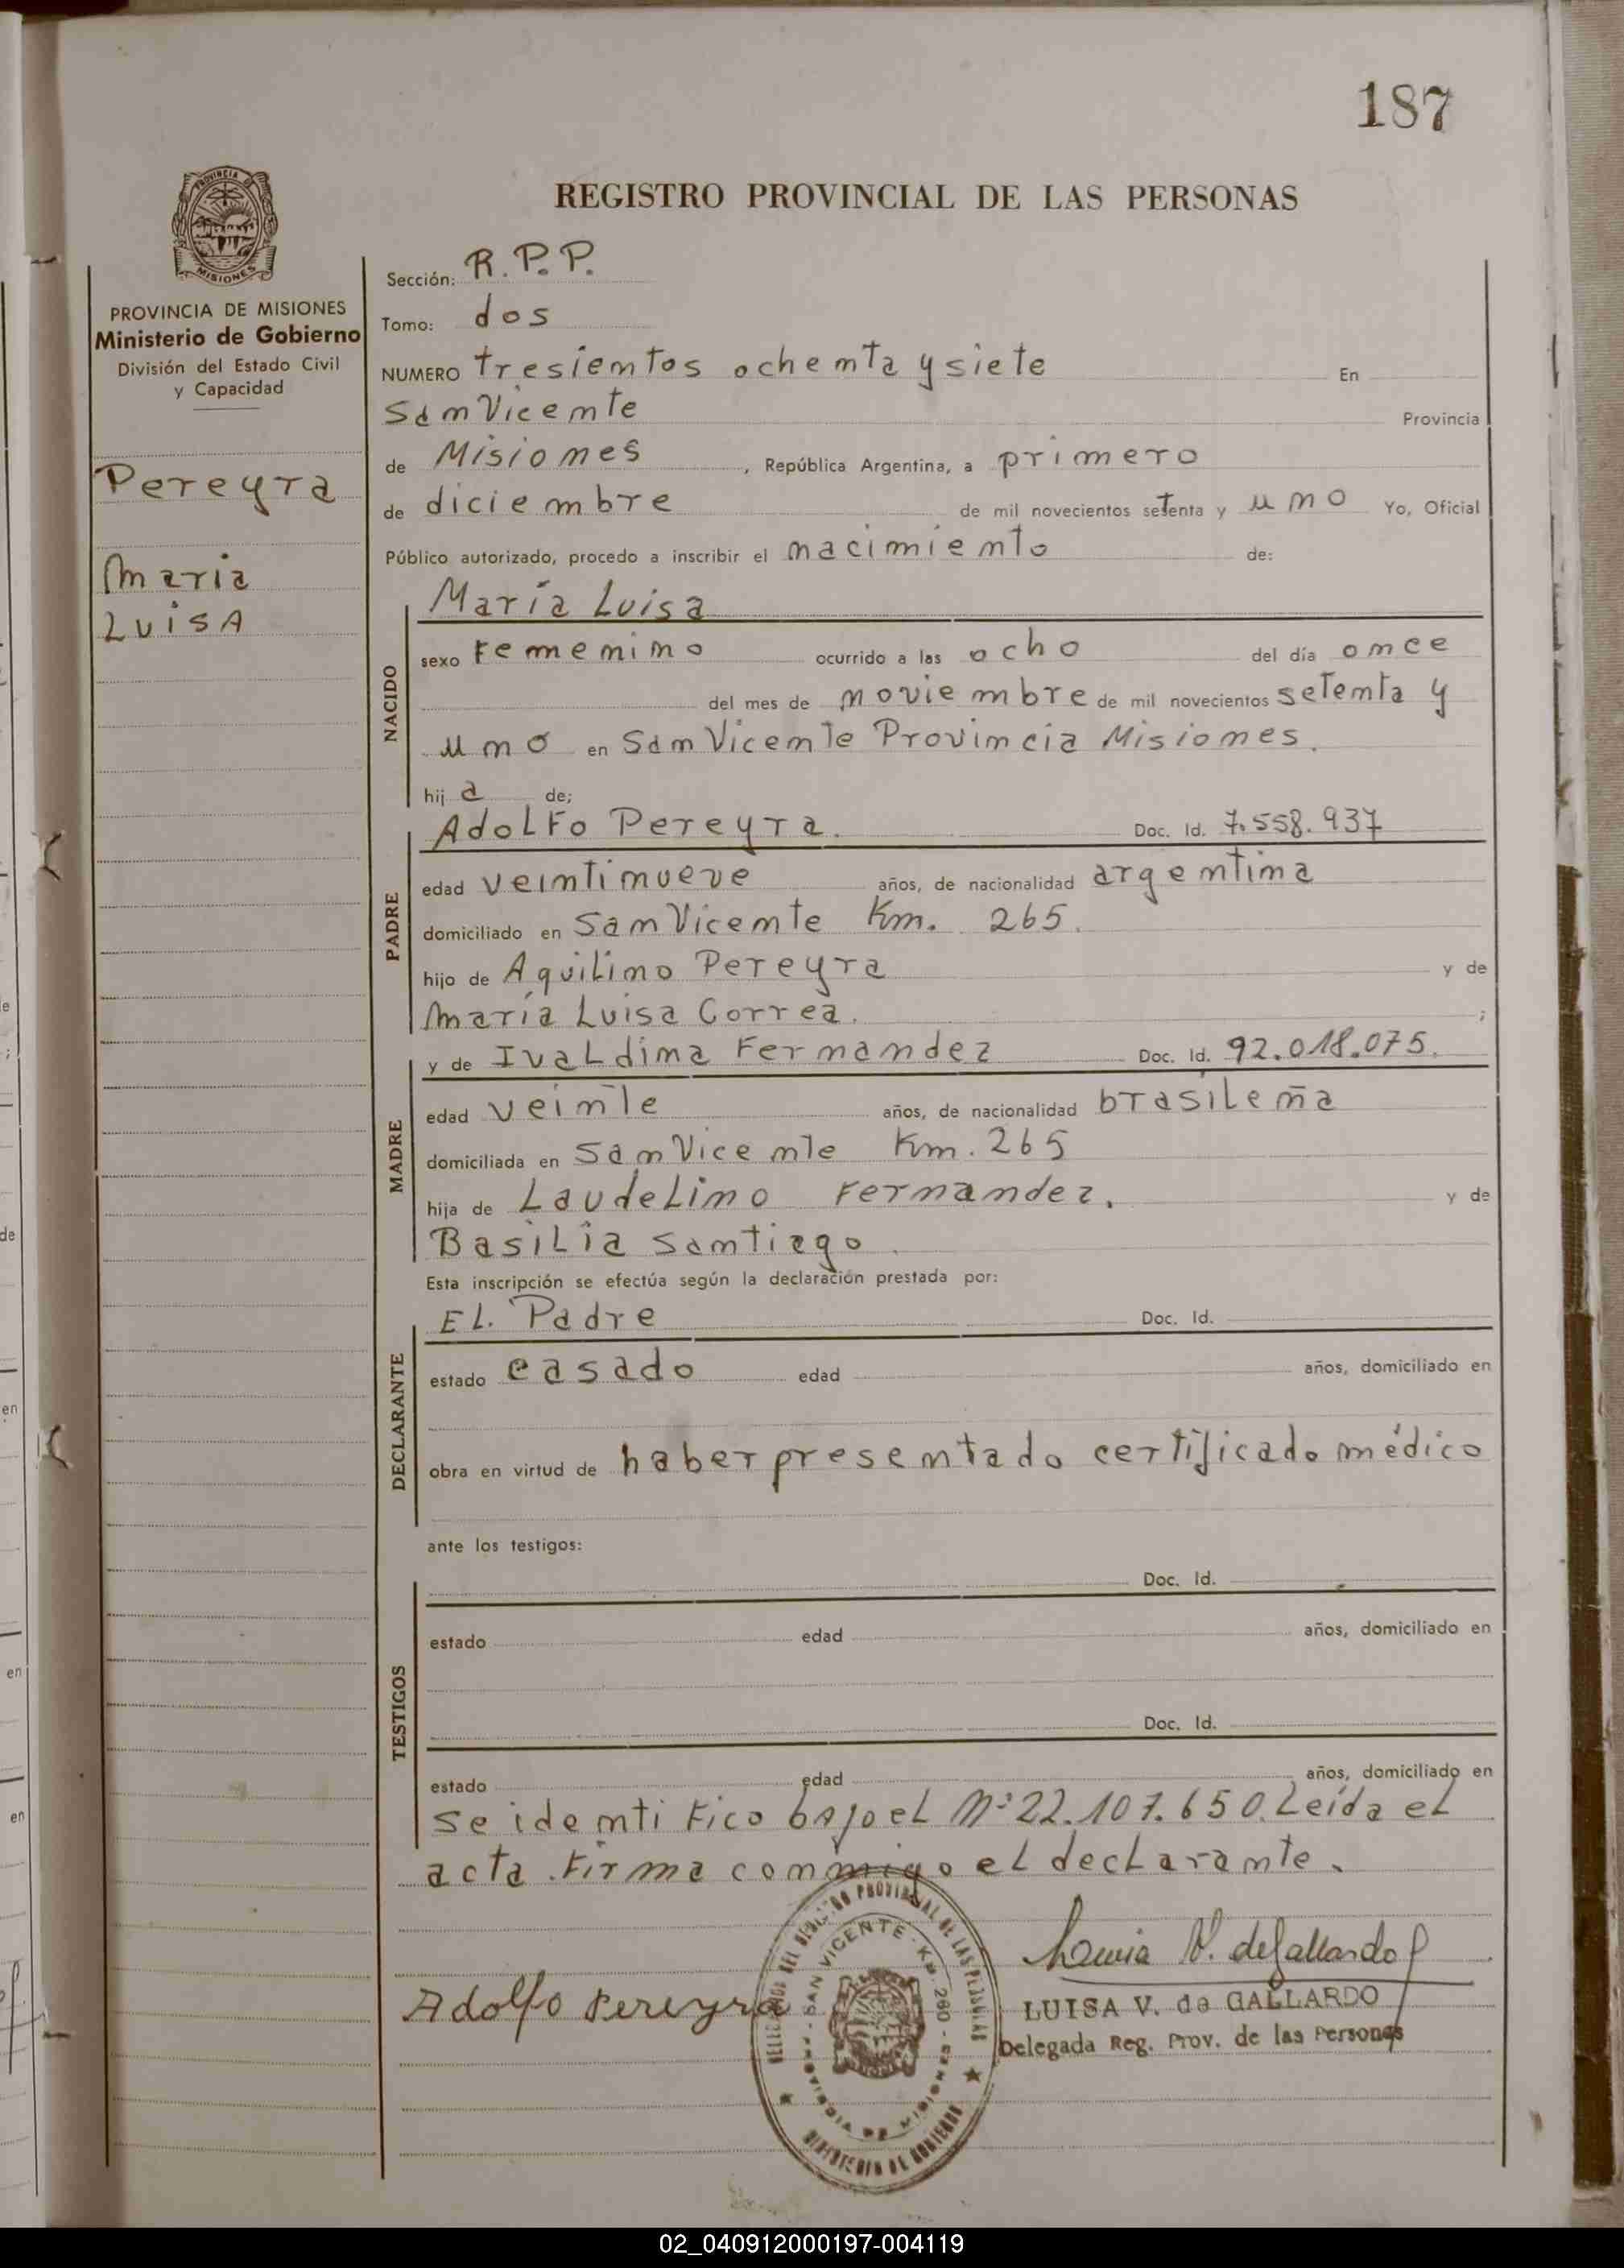 187
PROVINCIA DE
MISIONES
REGISTRO PROVINCIAL DE LAS PERSONAS
PROVINCIA DE MISIONES
Ministerio de Gobierno
División del Estado Civil
y Capacidad
Pereyra
Maria
Luisa
Sección: R.P.P.
Tomo: dos
NUMERO tresientos ochenta y siete En
San Vicente Provincia
de Misiones, República Argentina, a primero
de diciembre de mil novecientos setenta y uno Yo, Oficial
Público autorizado, procedo a inscribir el nacimiento de:
NACIDO
María Luisa
sexo Femenino ocurrido a las ocho del día once
del mes de noviembre de mil novecientos setenta y
uno en San Vicente Provincia Misiones.
hij a de;
PADRE
Adolfo Pereyra. Doc. Id. 7.558.937
edad veintinueve años, de nacionalidad argentina
domiciliado en San Vicente Km. 265.
hijo de Aquilino Pereyra y de
María Luisa Correa. ;
MADRE
y de Ivaldina Fernandez Doc. Id. 92.018.075.
edad veinte años, de nacionalidad brasileña
domiciliada en San Vicente Km. 265
hija de Laudelino Fernandez. y de
Basilia Santiago.
Esta inscripción se efectúa según la declaración prestada por:
DECLARANTE
El. Padre Doc. Id.
estado casado edad años, domiciliado en
obra en virtud de haber presentado certificado médico
ante los testigos:
TESTIGOS
Doc. Id.
estado edad años, domiciliado en
Doc. Id.
estado edad años, domiciliado en
se identifico bajo el Nº 22.107.650. Leída el
acta firma conmigo el declarante.
Adolfo Pereyra
DEL REGISTRO PROVINCIAL DE LAS PERSONAS
SAN VICENTE - KM. 260 -
PROVINCIA DE MISIONES
MINISTERIO DE GOBIERNO
Luisa V. de Gallardo
LUISA V. de GALLARDO
Delegada Reg. Prov. de las Personas
02_040912000197-004119